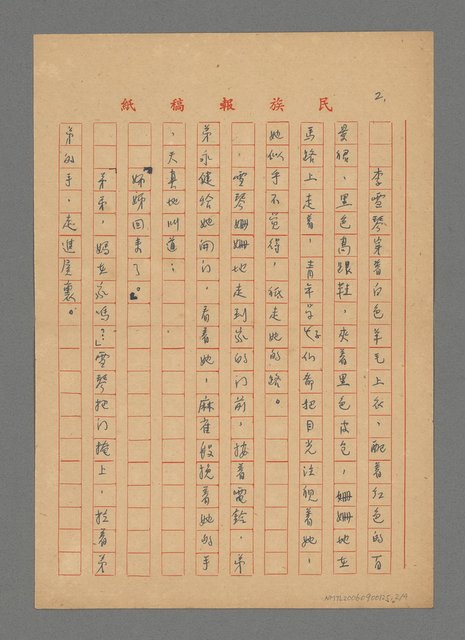 民族報稿紙
2.
李雪琴穿着白色羊毛上衣，配着紅色的百
景裙，黑色高跟鞋，夾着黑色皮包，姗姗地在
馬路上走着，青年学子们偷把目光注視着她，
她似乎不覚得，祇走她的路。
雪琴姗姗地走到家的门前，按着電鈴，弟
弟永健给她闹门，看着她，麻雀般挽着她的手
，天真地叫道：
姊姊回来了。
弟弟，媽在家嗎？」雪琴把门掩上，拉着弟
弟的手，走進屋裏。
NMTL20060900125 2/4